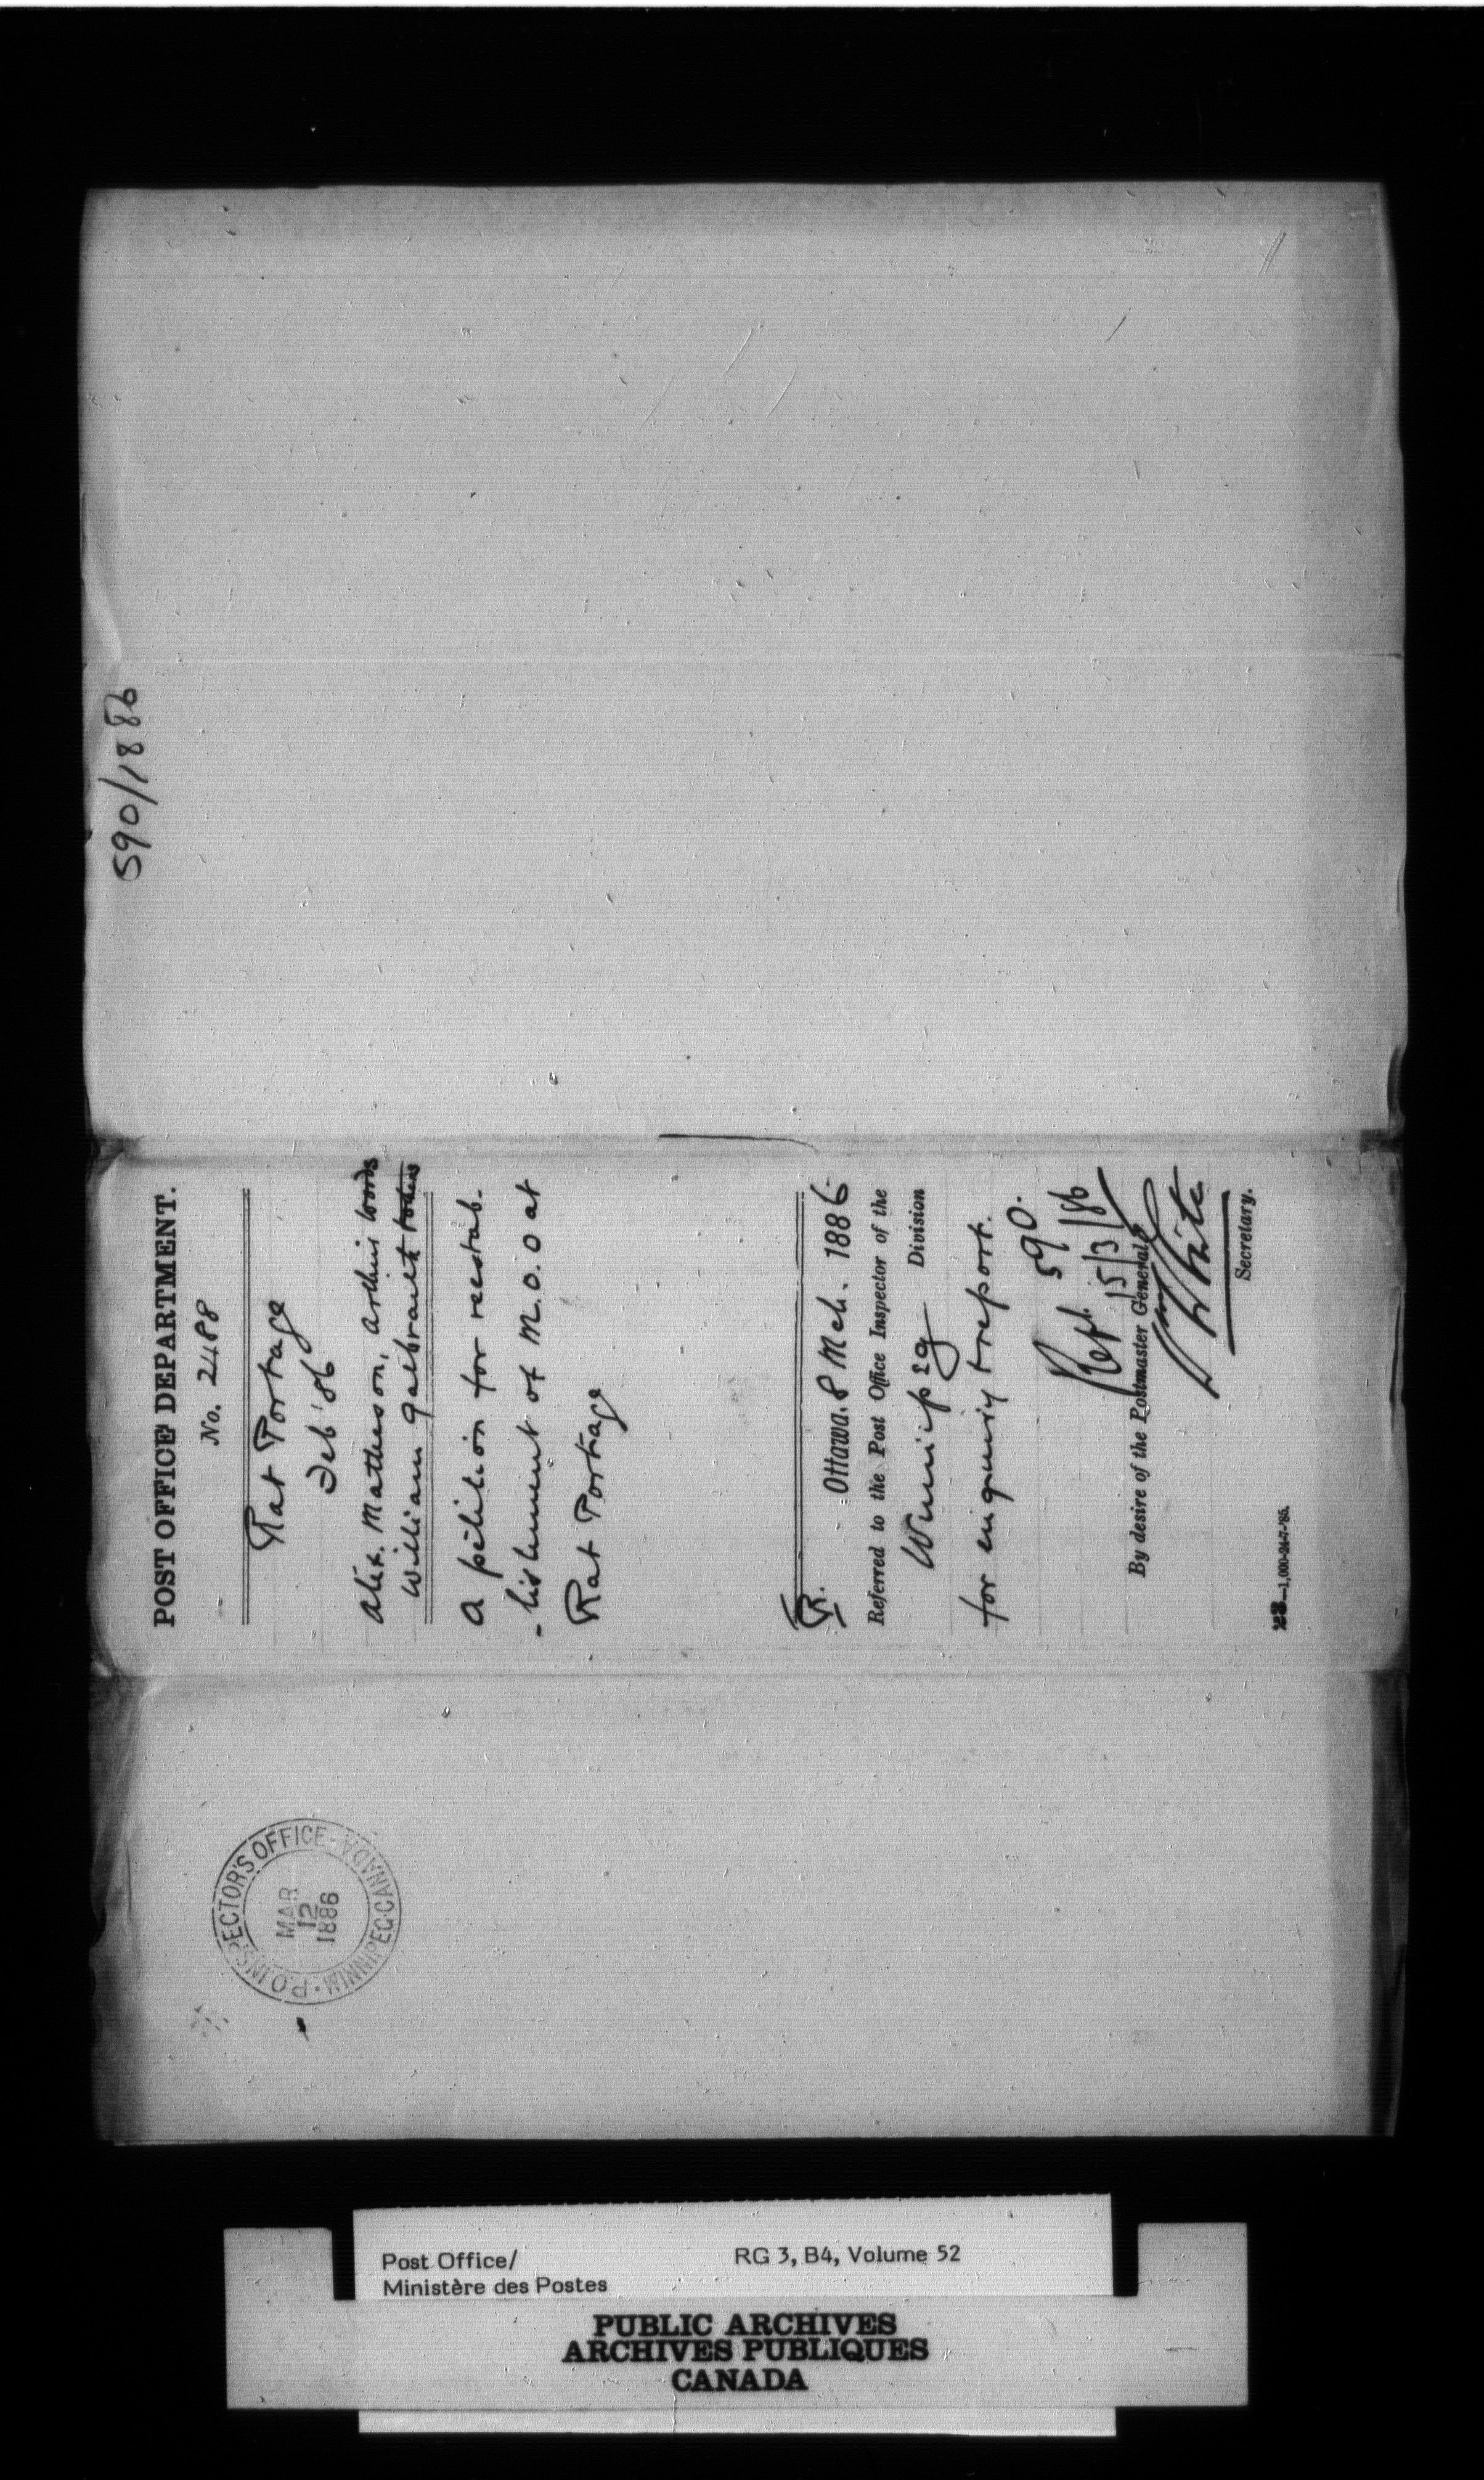 590/1886
POST OFFICE DEPARTMENT.
No. 2488
Rat Portage
Feb '86
Alex. Matheson, Arthur Woods
William Galbraith
A petition for reestab-
-lishment of M.O.O at
Rat Portage
R.
Ottawa. 8 Mch. 1886
Referred to the Post Office Inspector of the
Winnipeg Division
for enquiry & report.
Rept. 590.
15/3/86
By desire of the Postmaster General,
White
Secretary.
23—1,000-24-7-'85.
P.O. INSPECTOR'S OFFICE · WINNIPEG·CANADA
MAR
12
1886
Post Office/
Ministère des Postes
RG 3, B4, Volume 52
PUBLIC ARCHIVES
ARCHIVES PUBLIQUES
CANADA